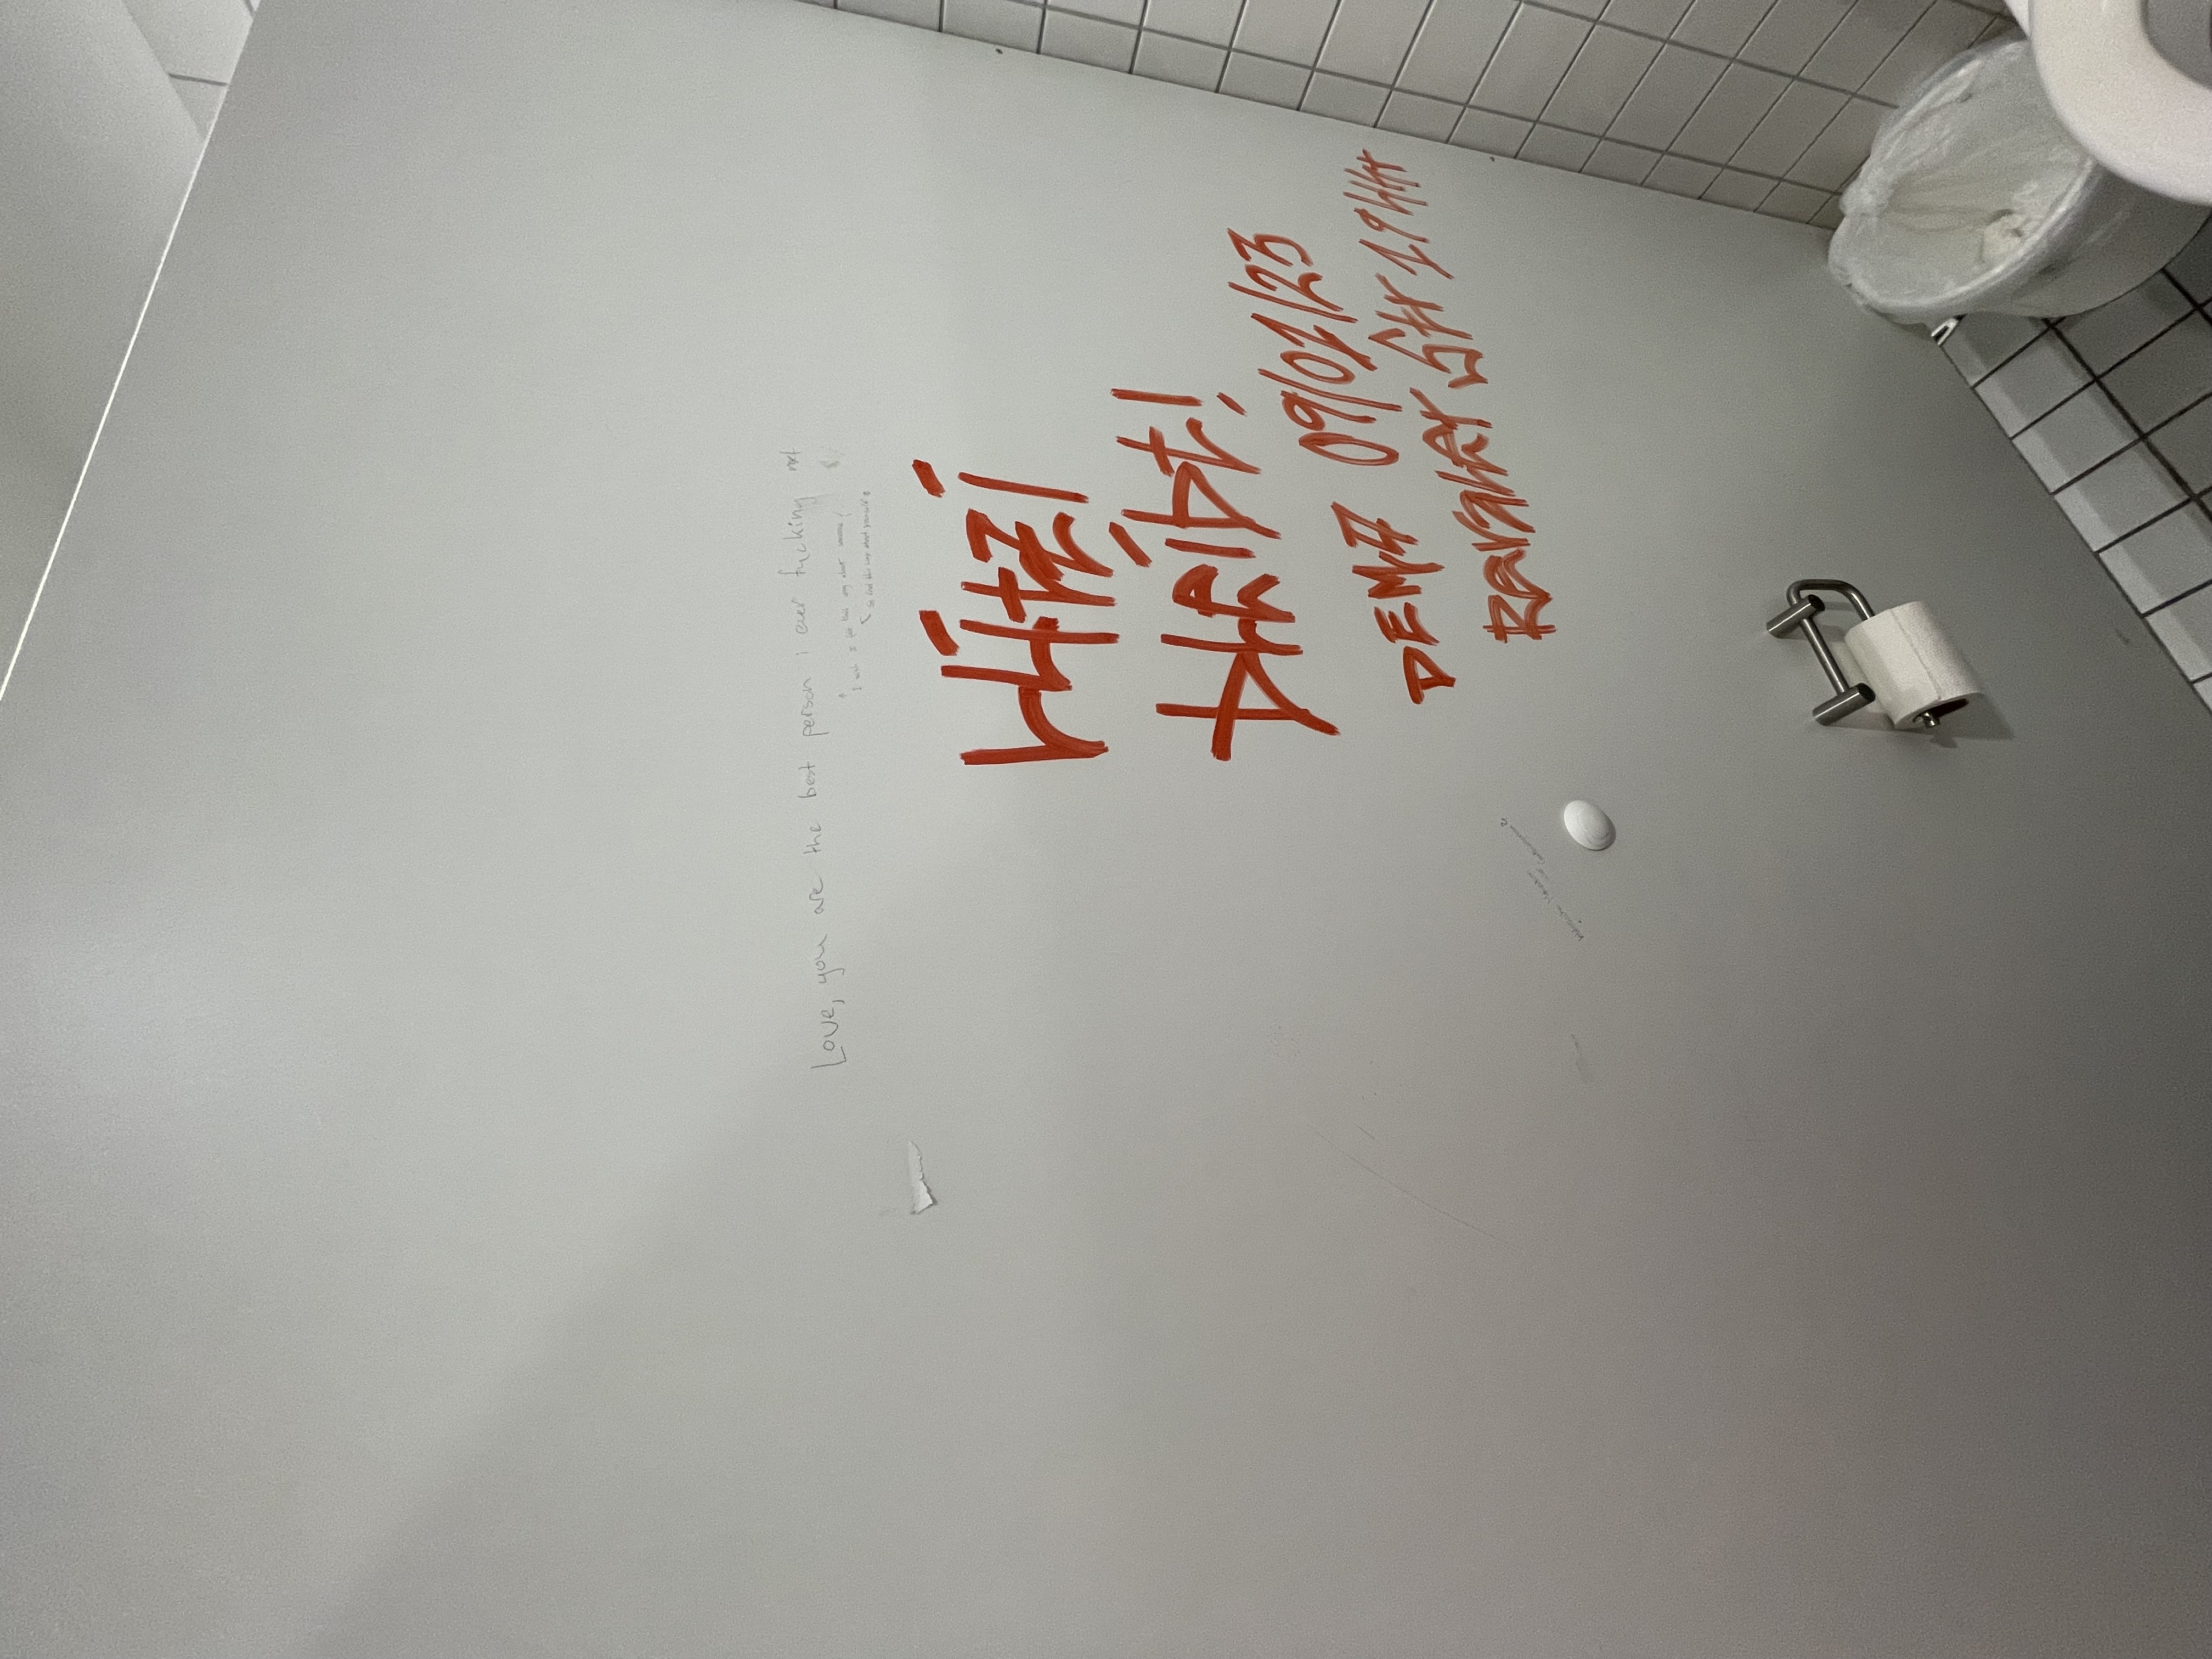 Love, you are the best person i ever fucking met
I wish I felt this way about someone
So feel this way about yourself
Lützi
bleibt!
DEMO 09/01/23
Revaler Str 19 Uhr